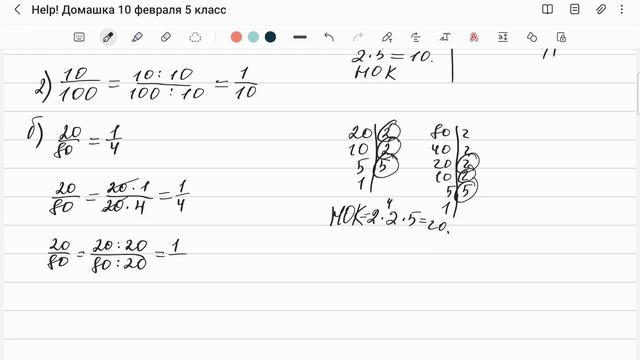 Help! Домашка 10 февраля 5 класс
2·5=10.
НОК
2) 10/100 = 10:10/100:10 = 1/10
б) 20/80 = 1/4
20/80 = 20·1/20·4 = 1/4
20/80 = 20:20/80:20 = 1/
20 | 2
10 | 2
5 | 5
1 |
80 | 2
40 | 2
20 | 2
10 | 2
5 | 5
1 |
НОК=2·2·5=20.
4